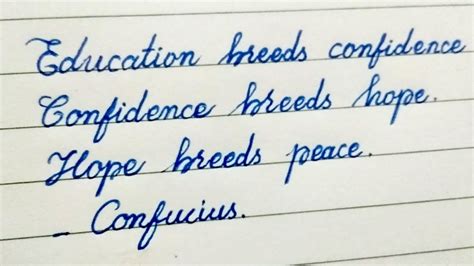 Education breeds confidence
Confidence breeds hope.
Hope breeds peace.
- Confucius.